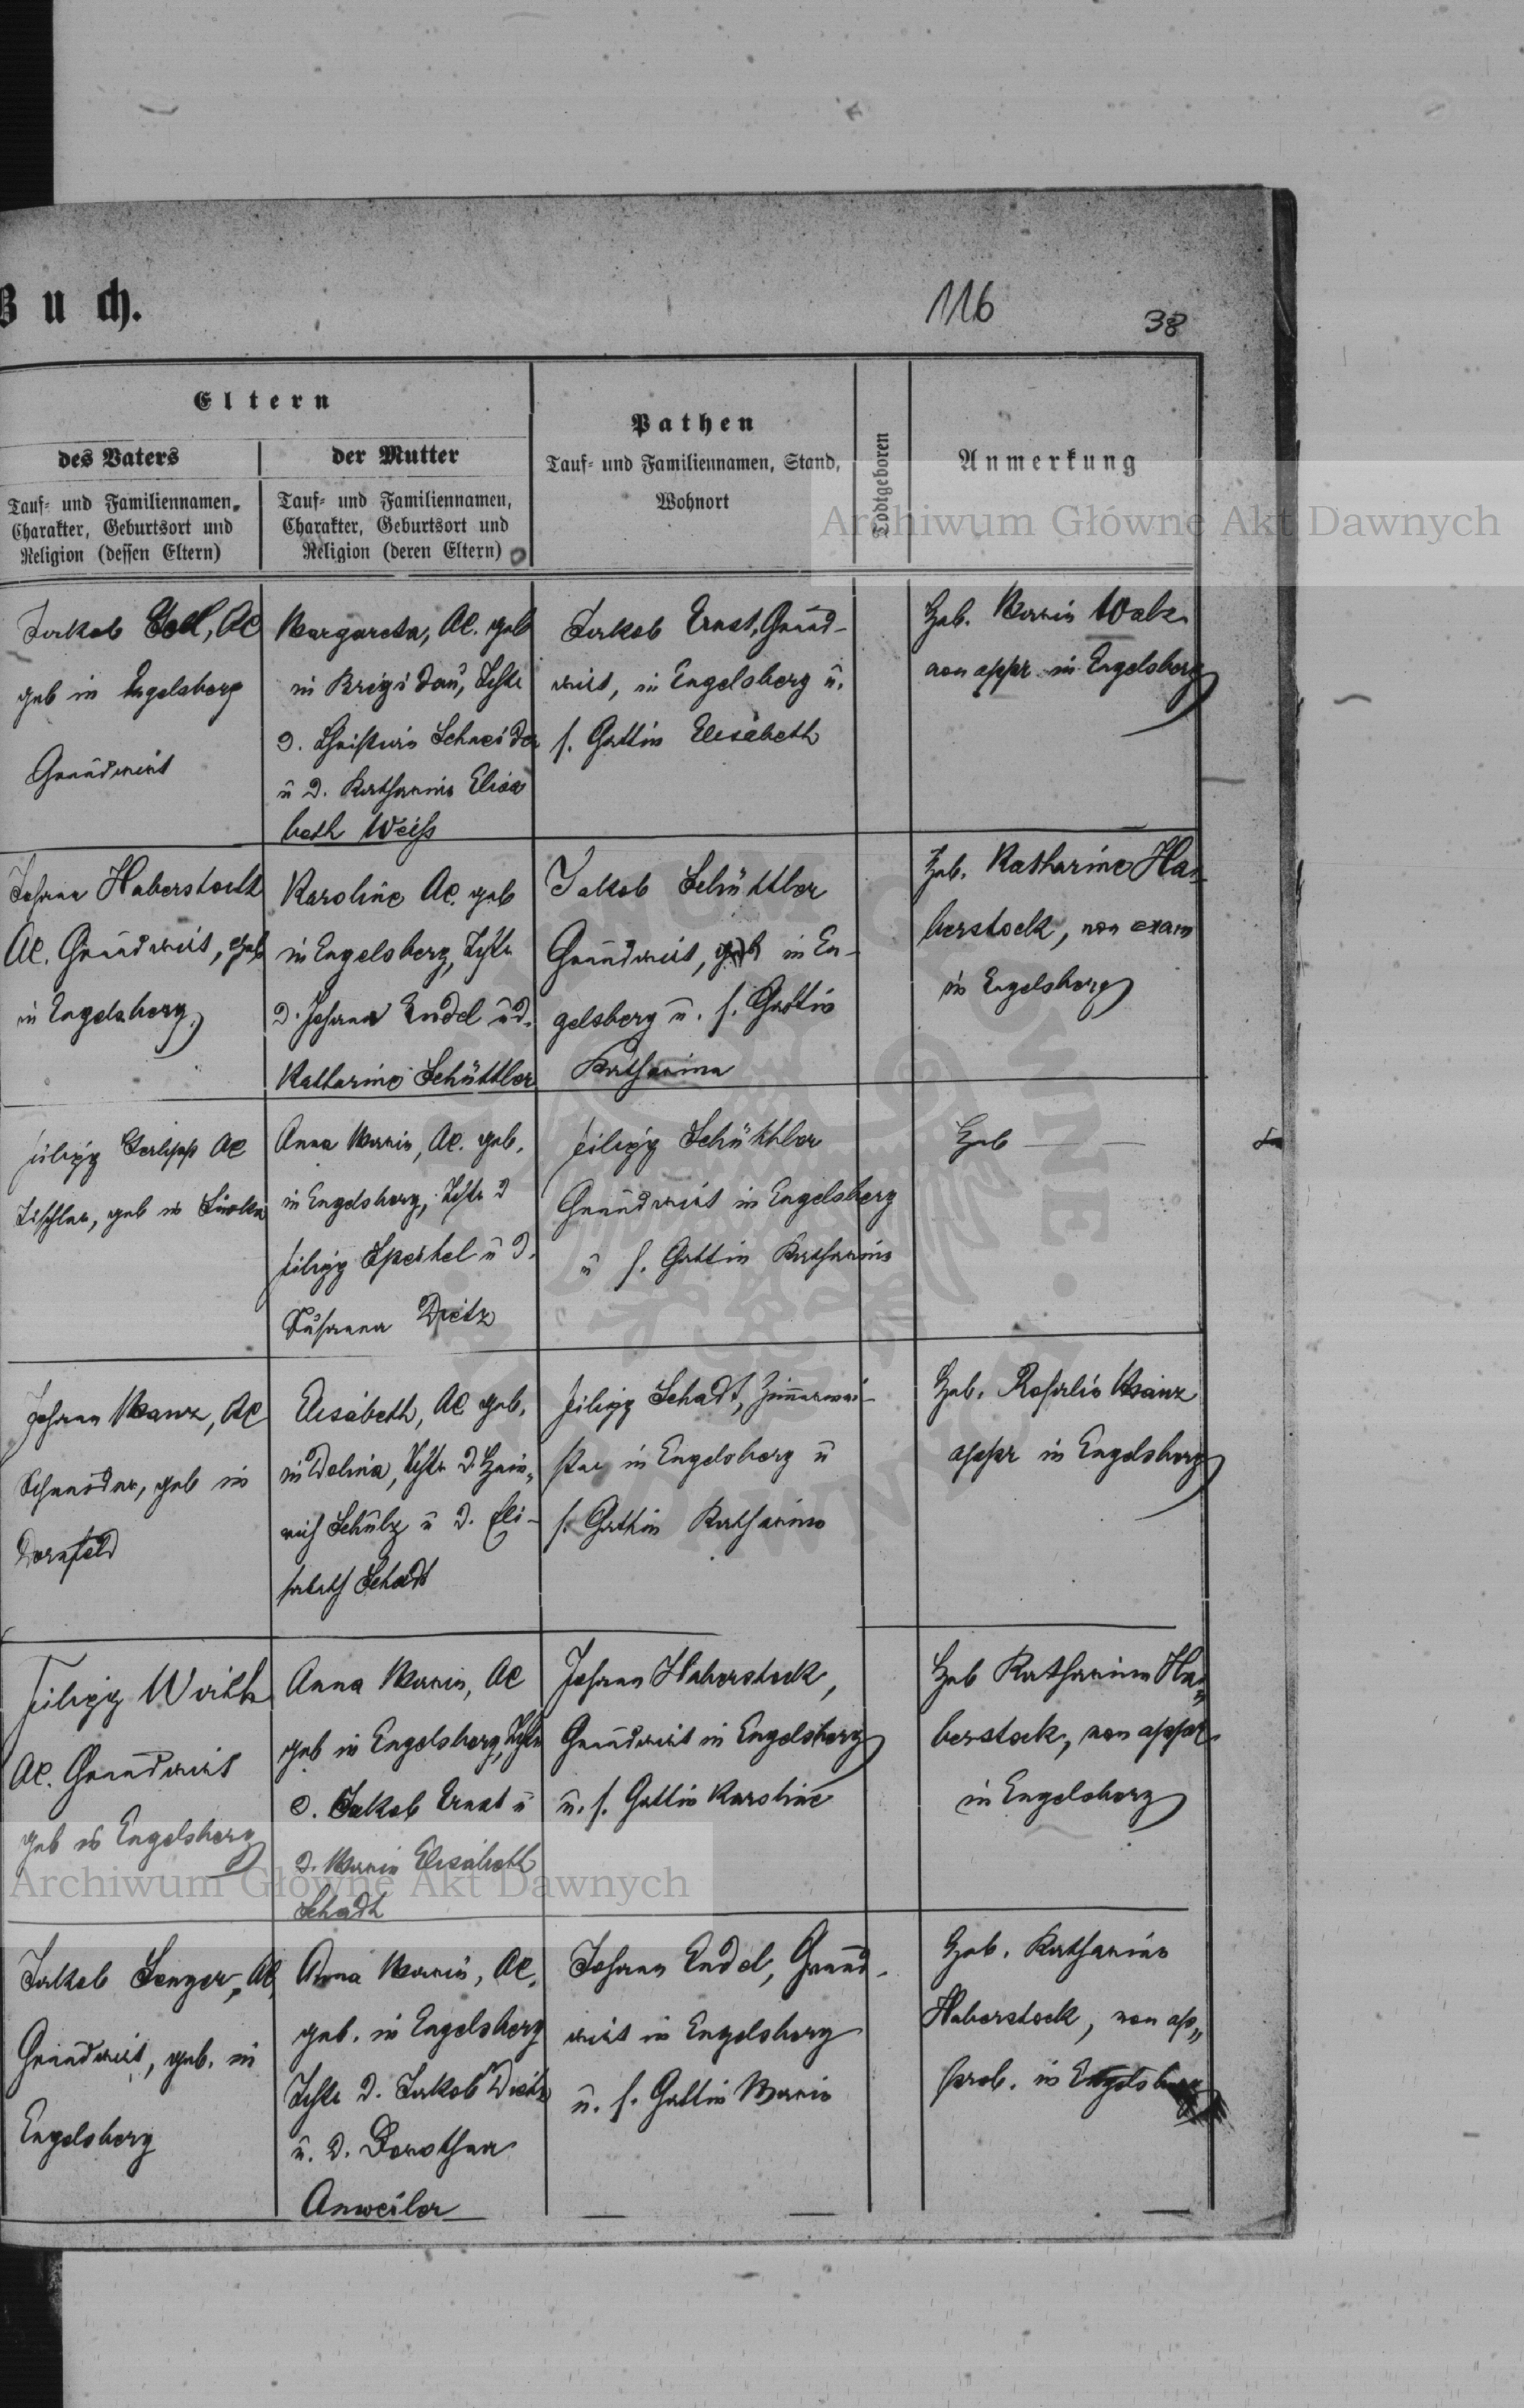 Buch.
116
38
Eltern
des Vaters
Tauf- und Familiennamen,
Charakter, Geburtsort und
Religion (dessen Eltern)
der Mutter
Tauf- und Familiennamen,
Charakter, Geburtsort und
Religion (deren Eltern)
Pathen
Tauf- und Familiennamen, Stand,
Wohnort
Todtgeboren
Anmerkung
Archiwum Główne Akt Dawnych
Jakob AC
geb in Engelsberg
Grundwirt
Margareta, AC. geb
in Brigidau, Tchtr
d. Christian Schneider
u d. Katharina Elisa
beth Weiss
Jakob Ernst, Grund-
wirt, in Engelsberg u.
s. Gattin Elisabeth
Heb. Maria Walz
non appr in Engelsberg
Johann Haberstock
AC. Grundwirt, geb
in Engelsberg
Karoline AC. geb
in Engelsberg, Tchtr
d. Johann Endel u d.
Katharina Schüttler
Jakob Schüttler
Grundwirt, geb in En-
gelsberg u. s. Gattin
Katharina
Heb. Katharina Ha-
berstock, non exam
in Engelsberg
Filipp AC
Tischler, geb in
Anna Maria, AC. geb.
in Engelsberg, Tchtr d
Filipp Speikel u d.
Susanna Dietz
Filipp Schüttler
Grundwirt in Engelsberg
u s. Gattin Katharina
Heb
Johann Manz, AC
Schneider, geb in
Dornfeld
Elisabeth, AC geb.
in Dolina, Tchtr d. Hein-
rich Schulz u d. Eli-
sabeth Schadt
Filipp Schadt, Zimmermei-
ster in Engelsberg u
s. Gattin Katharina
Heb. Rosalia Manz
appr in Engelsberg
Filipp Wirth
AC. Grundwirt
geb in Engelsberg
Anna Maria, AC
geb in Engelsberg, Tchtr
d. Jakob Ernst u
d. Maria Elisabeth
Schadt
Johann Haberstock,
Grundwirt in Engelsberg
u. s. Gattin Karoline
Heb Katharina Ha-
berstock, non appr
in Engelsberg
Archiwum Główne Akt Dawnych
Jakob Senger, AC
Grundwirt, geb. in
Engelsberg
Anna Maria, AC.
geb. in Engelsberg
Tchtr d. Jakob Dietz
u. d. Dorothea
Anweiler
Johann Endel, Grund-
wirt in Engelsberg
u. s. Gattin Maria
Heb. Katharina
Haberstock, non ap-
prob. in Engelsberg